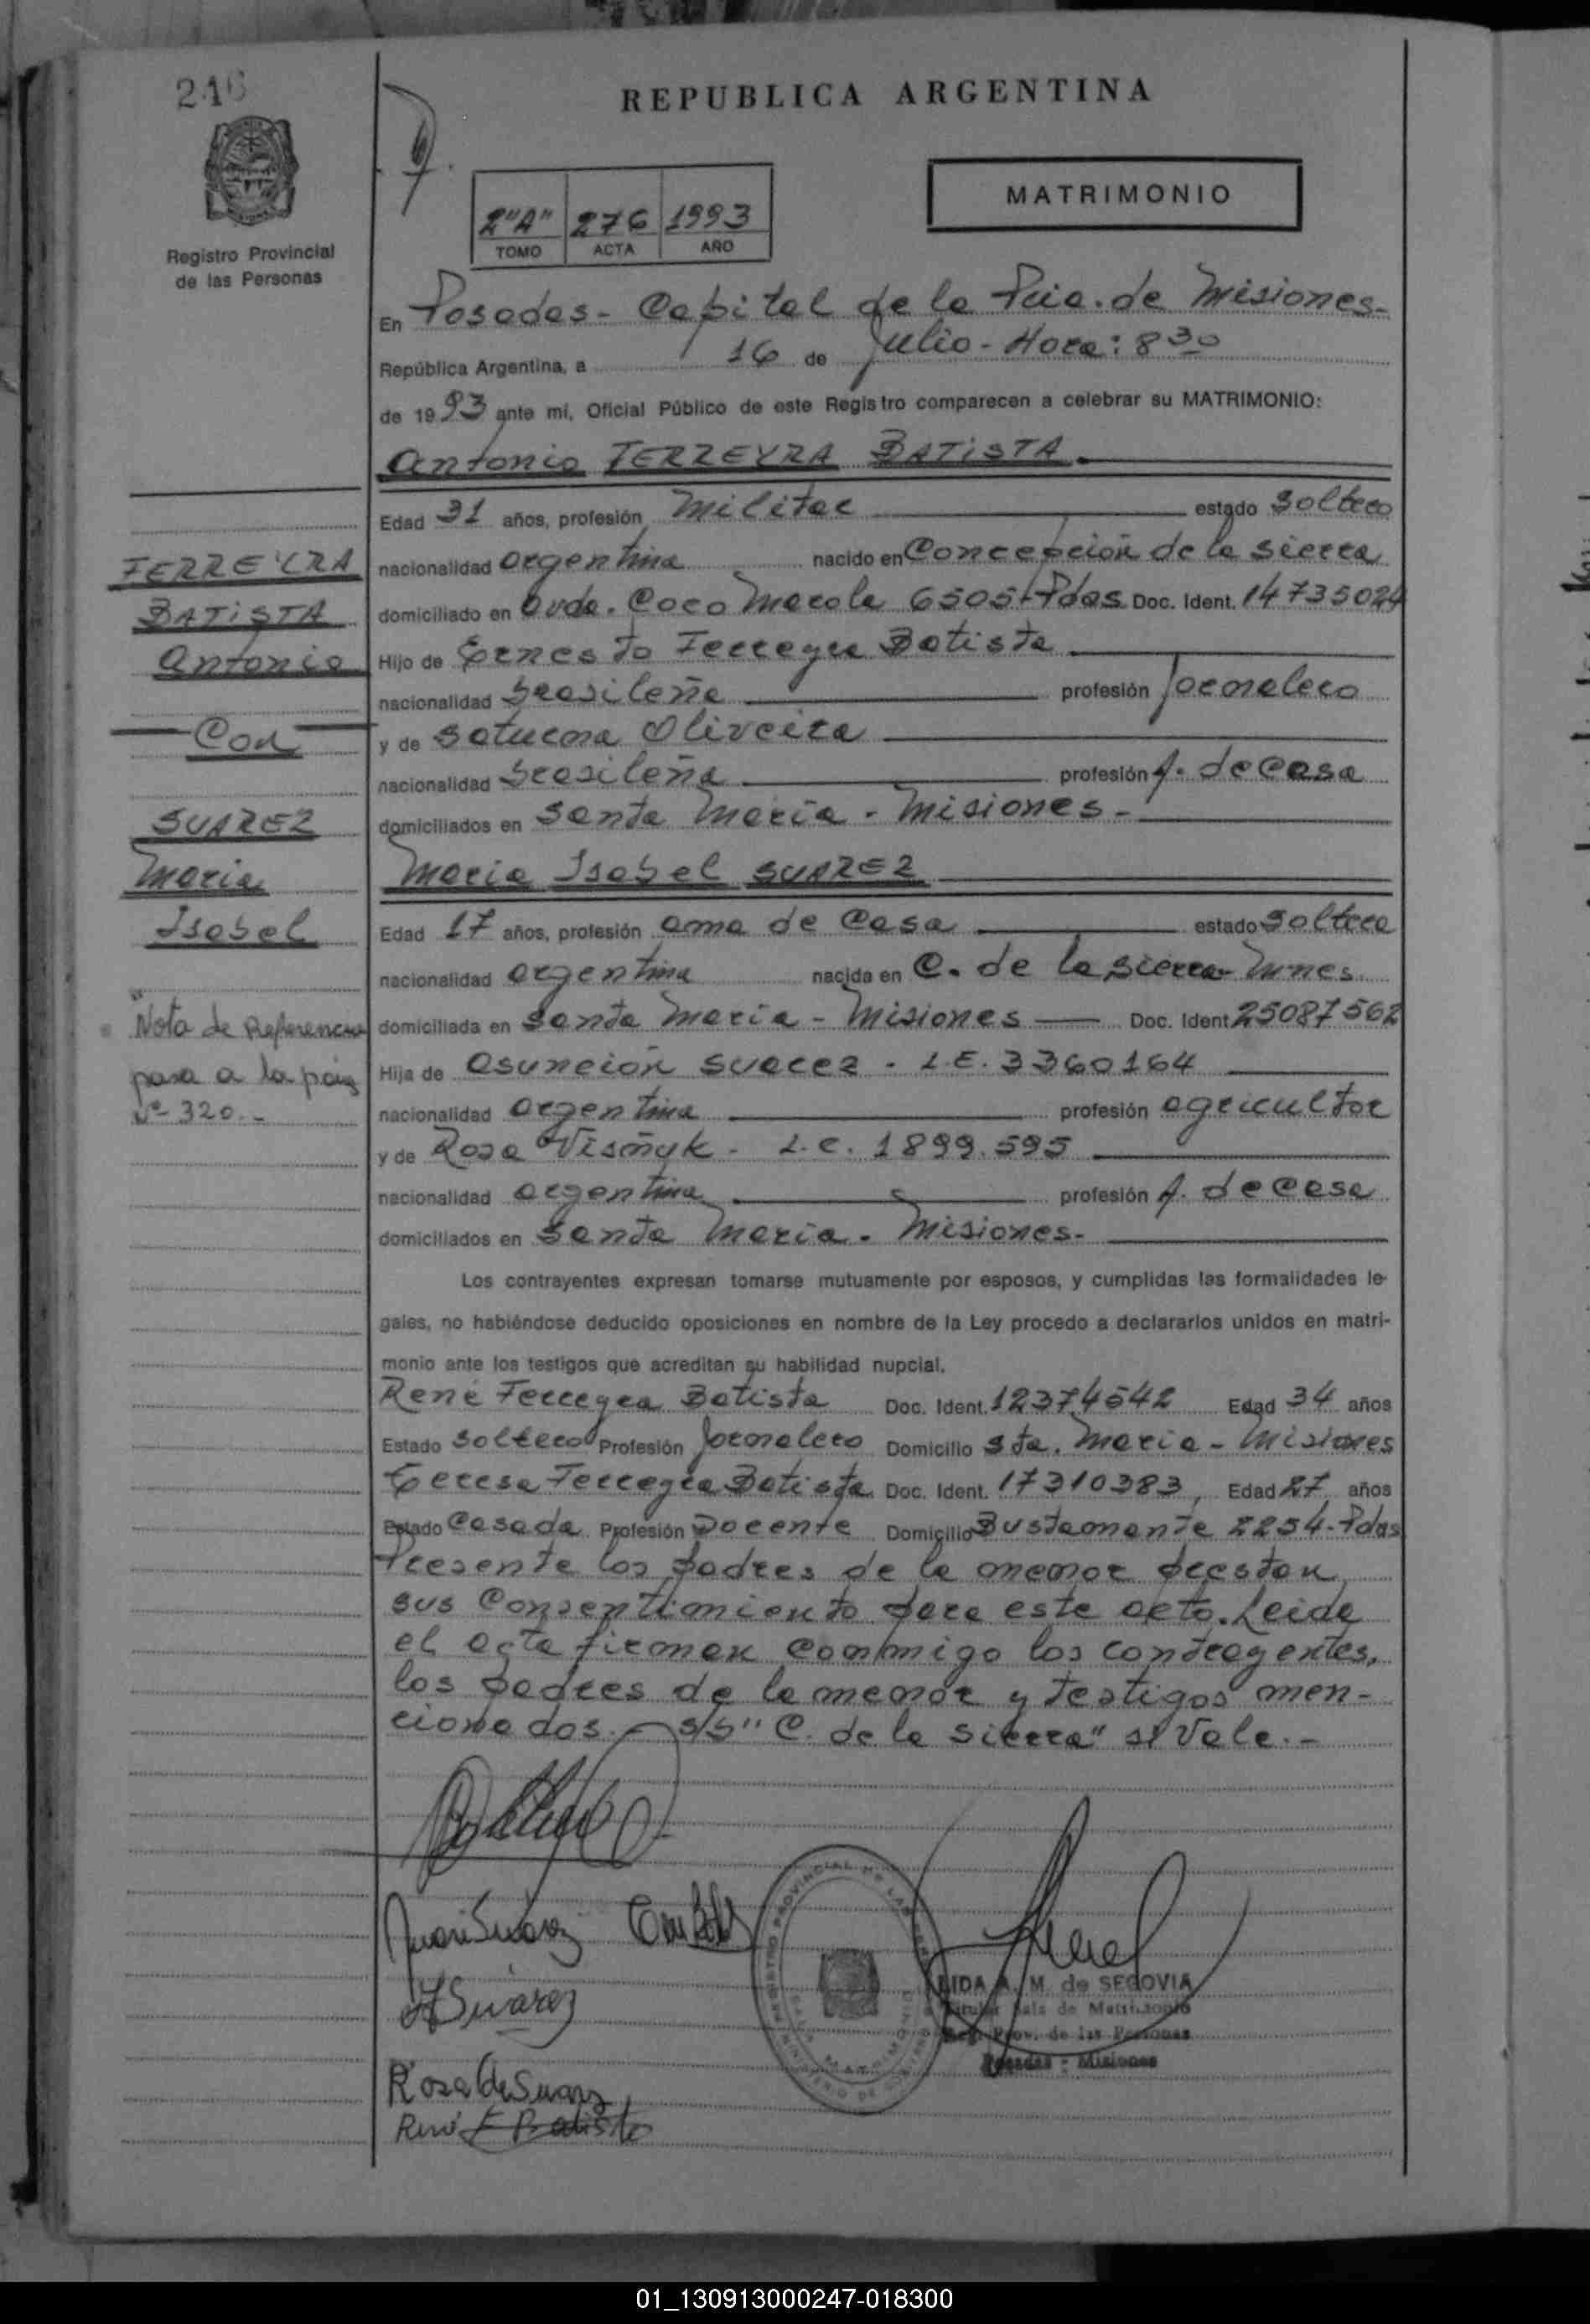 246
REPUBLICA ARGENTINA
MATRIMONIO
2"A" 276 1993
TOMO ACTA AÑO
Registro Provincial
de las Personas
En Posadas - Capital de la Pcia. de Misiones -
República Argentina, a 16 de Julio - Hora: 8 30
de 1993 ante mí, Oficial Público de este Registro comparecen a celebrar su MATRIMONIO:
Antonio FERREYRA BATISTA
Edad 31 años, profesión Militar estado soltero
nacionalidad argentina nacido en Concepción de la Sierra
domiciliado en Avda. Coco Marola 6505 - Pdas Doc. Ident. 14735024
Hijo de Ernesto Ferreyra Batista
nacionalidad brasileña profesión Jornalero
y de Saturna Oliveira
nacionalidad brasileña profesión A. de Casa
domiciliados en Santa María - Misiones -
María Isabel SUAREZ
Edad 17 años, profesión ama de Casa estado soltera
nacionalidad argentina nacida en C. de la Sierra - Mnes.
domiciliada en Santa María - Misiones Doc. Ident 25087562
Hija de Asunción Suarez - L.E. 3360164
nacionalidad argentina profesión agricultor
y de Rosa Visñuk - L.C. 1899.595
nacionalidad argentina profesión A. de Casa
domiciliados en Santa María - Misiones -
FERREYRA
BATISTA
Antonio
Con
SUAREZ
María
Isabel
"Nota de Referencia
pasa a la pág
Nº 320.-
Los contrayentes expresan tomarse mutuamente por esposos, y cumplidas las formalidades le-
gales, no habiéndose deducido oposiciones en nombre de la Ley procedo a declararlos unidos en matri-
monio ante los testigos que acreditan su habilidad nupcial.
René Ferreyra Batista Doc. Ident. 12374542 Edad 34 años
Estado Soltero Profesión Jornalero Domicilio Sta. María - Misiones
Teresa Ferreyra Batista Doc. Ident. 17310383, Edad 27 años
Estado Casada Profesión Docente Domicilio Bustamante 2254 - Pdas
Presente los padres de la menor prestan
sus Consentimiento para este acto. Leida
el acta firman conmigo los contrayentes,
los padres de la menor y testigos men-
cionados. - S/b "C. de la Sierra" si Vale. -
A Suarez
Rosa de Suarez
René F Batista
LIDA A. M. de SEGOVIA
Titular Sala de Matrimonio
Reg. Prov. de las Personas
Posadas - Misiones
01_130913000247-018300